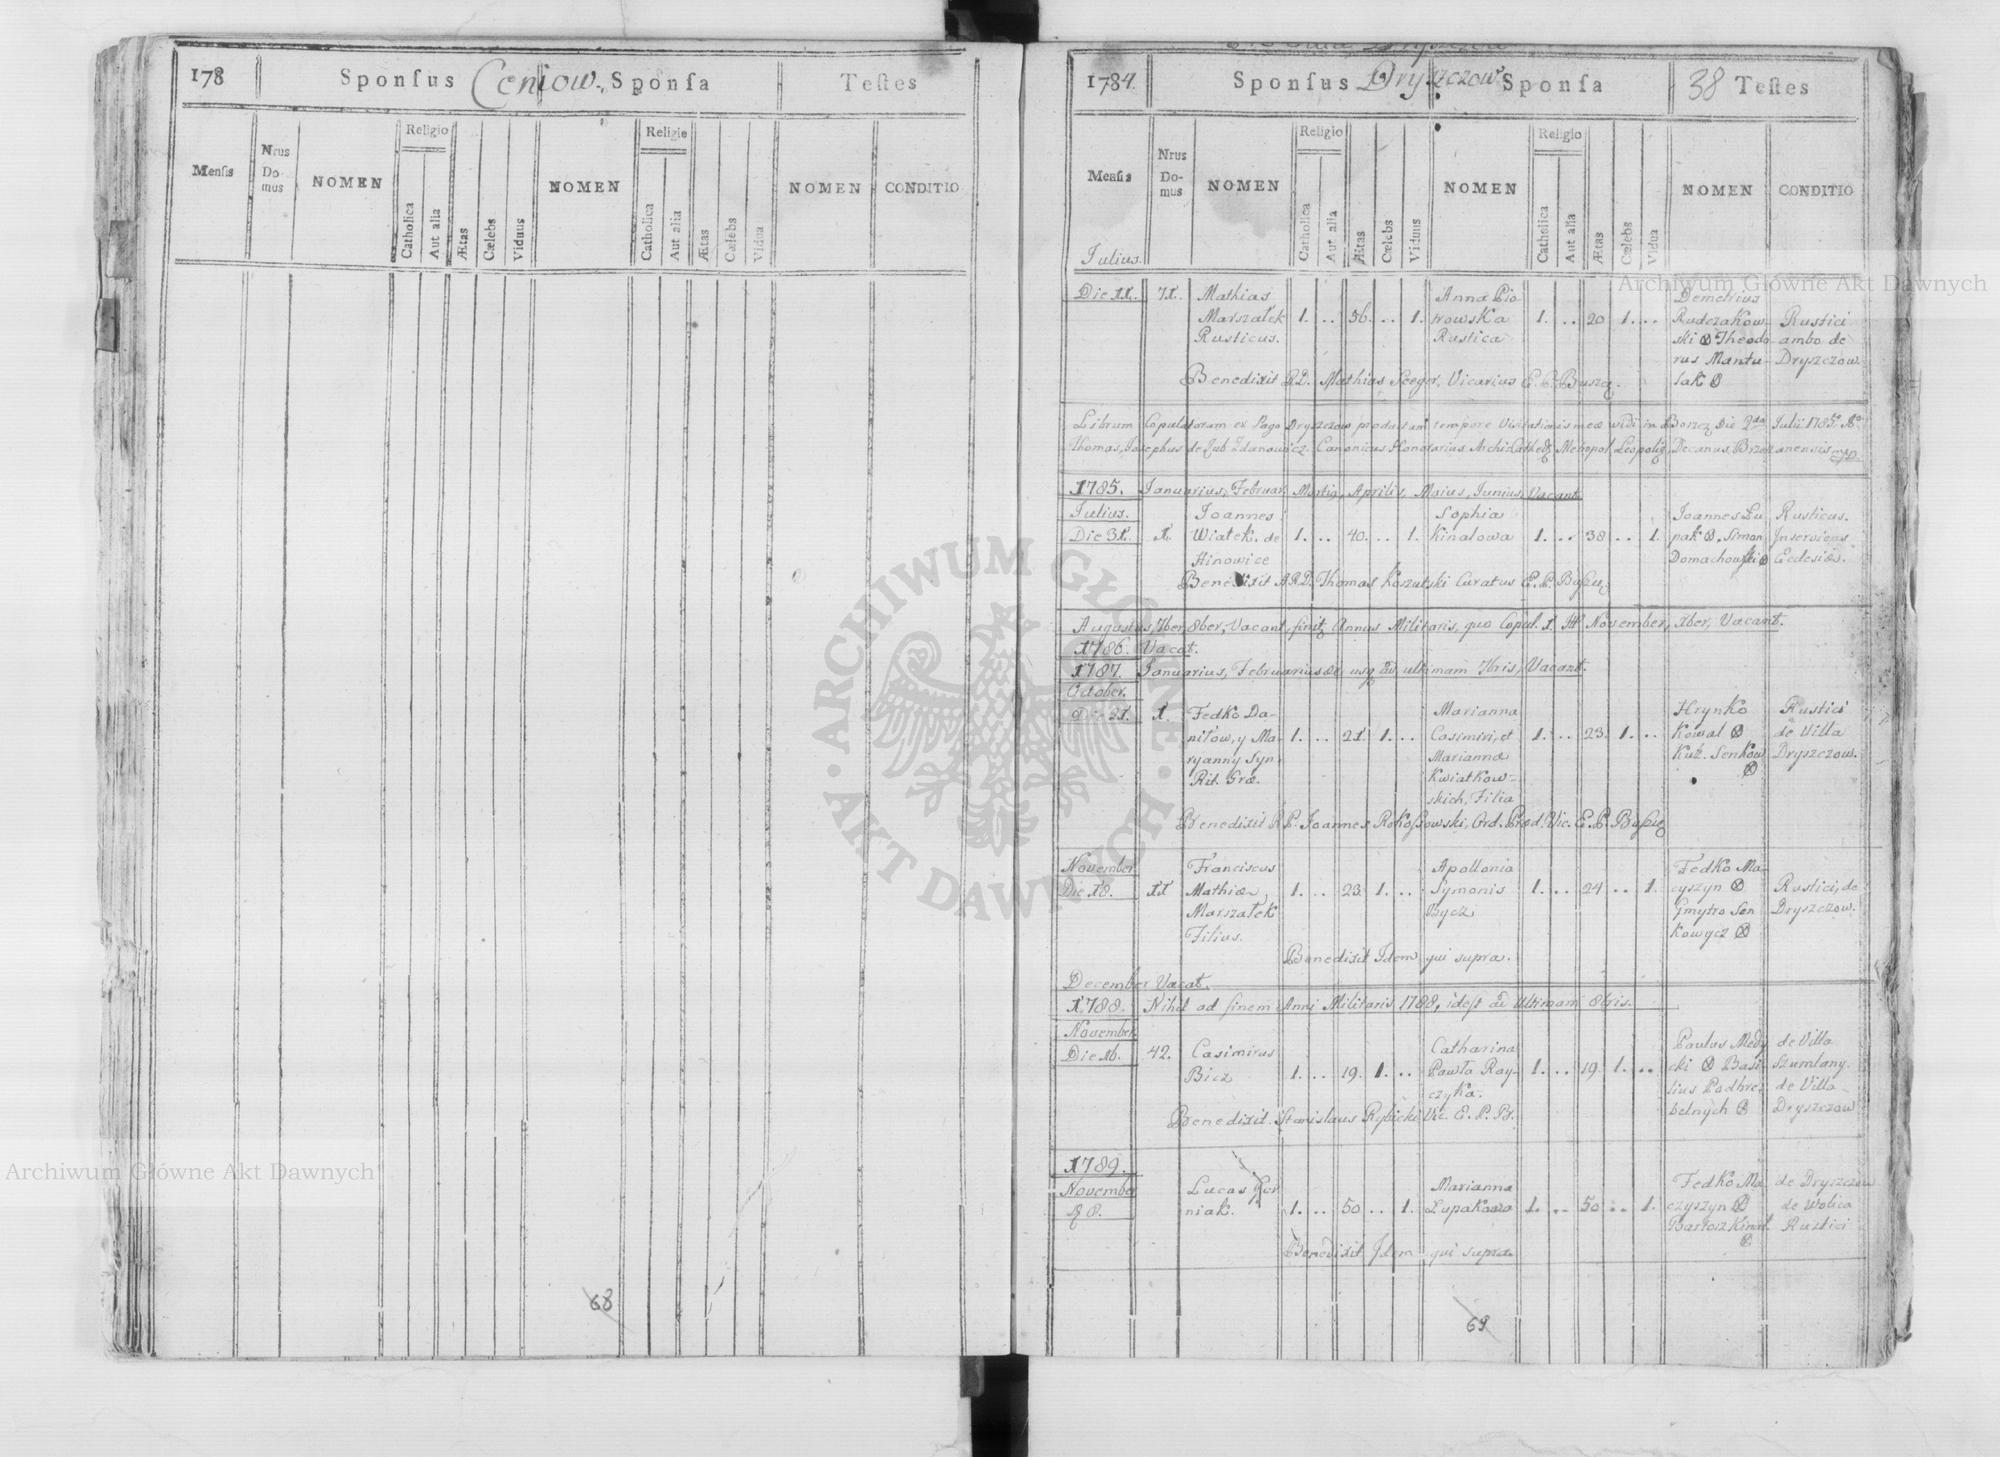 178 Sponsus Ceniow. Sponsa Testes
Mensis Nrus Domus NOMEN Religio Catholica Aut alia Ætas Cælebs Viduus NOMEN Religio Catholica Aut alia Ætas Cælebs Vidua NOMEN CONDITIO
68
1784. Sponsus Dryszczow Sponsa 38 Testes
Mensis Nrus Do-mus NOMEN Religio Catholica Aut alia Ætas Cælebs Viduus NOMEN Religio Catholica Aut alia Ætas Cælebs Vidua NOMEN CONDITIO
Julius.
Die 11. 71. Mathias Anna Pio Demetrius
Marszałek 1. .. 56. .. 1. trowska 1. .. 20 1. .. Rudczakow- Rustici
Rusticus. Rustica ski Theodo- ambo de
rus Mantu- Dryszczow
Benedixit R.D. Mathias Seeger, Vicarius E. P. Buszcz. lak
Librum Copulatorum ex Pago Dryszczow productum tempore Visitationis meæ vidi in Borzcz Die 2da Julii 1785.
Thomas, Josephus de Zdanowicz Canonicus Honorarius Metropol. Leopol. Decanus Brzezanensis
1785. Januarius, Februar. Martig, Aprilis. Maius, Junius, Vacant
Julius. Joannes Sophia Joannes Łu Rusticus.
Die 31. 1. Wiatek. de 1. .. 40. .. 1. Kinalowa 1. .. 38 .. 1. pak, Simon Inserviens
Hinowice Domachowski Ecclesiæ.
Benedixit A.R.D. Thomas Koszutski Curatus E. P.
Augustus, 7ber, 8ber, Vacant, finitg Annus Militaris, quo Copul. 1. November, xber, Vacant.
1786. Vacat.
1787. Januarius, Februarius usq ad ultimam 7bris, Vacant.
October.
Die 21. 1. Fedko Da- Marianna Hrynko Rustici
niłow, y Ma- 1. .. 21. 1. .. Casimiri, et 1. .. 23. 1. .. Kowal de Villa
ryanny Syn Marianna Kuź. Senkow Dryszczow.
Rit. Græ. Kwiatkow-
skich, Filia
Benedixit R.P. Joannes Rokossowski, Ord. Præd. Vic. E. P.
November Franciscus Apollonia Fedko Ma-
Die 18. 11 Mathiæ, 1. .. 23. 1. .. Symonis 1. .. 24 .. 1. cyszyn Rustici, de
Marszałek Bycz Gmytro Sen Dryszczow.
Filius. kowycz
Benedixit Idem qui supra.
December Vacat.
1788. Nihil ad finem Anni Militaris 1788, idest ad Ultimam 8bris.
November Catharina Paulus Medy de Villa
Die 16. 42. Casimirus Pawła Ray- cki Basi- Szumlany.
Bicz 1. .. 19. 1. .. czyka. 1. .. 19. 1. .. lius Podhre- de Villa
belnych Dryszczow
Benedixit Stanislaus Rybicki Vic. E. P. B.
1789.
November Lucas Marianna Fedko Ma- de Dryszczow
8. niak. 1. .. 50 .. 1. Łupakowa 1. .. 50 .. 1. czyszyn de Wolica
Bartosz Kinal Rustici
Benedixit Idem qui supra
69
Archiwum Główne Akt Dawnych
Archiwum Główne Akt Dawnych
ARCHIWUM GŁÓWNE AKT DAWNYCH